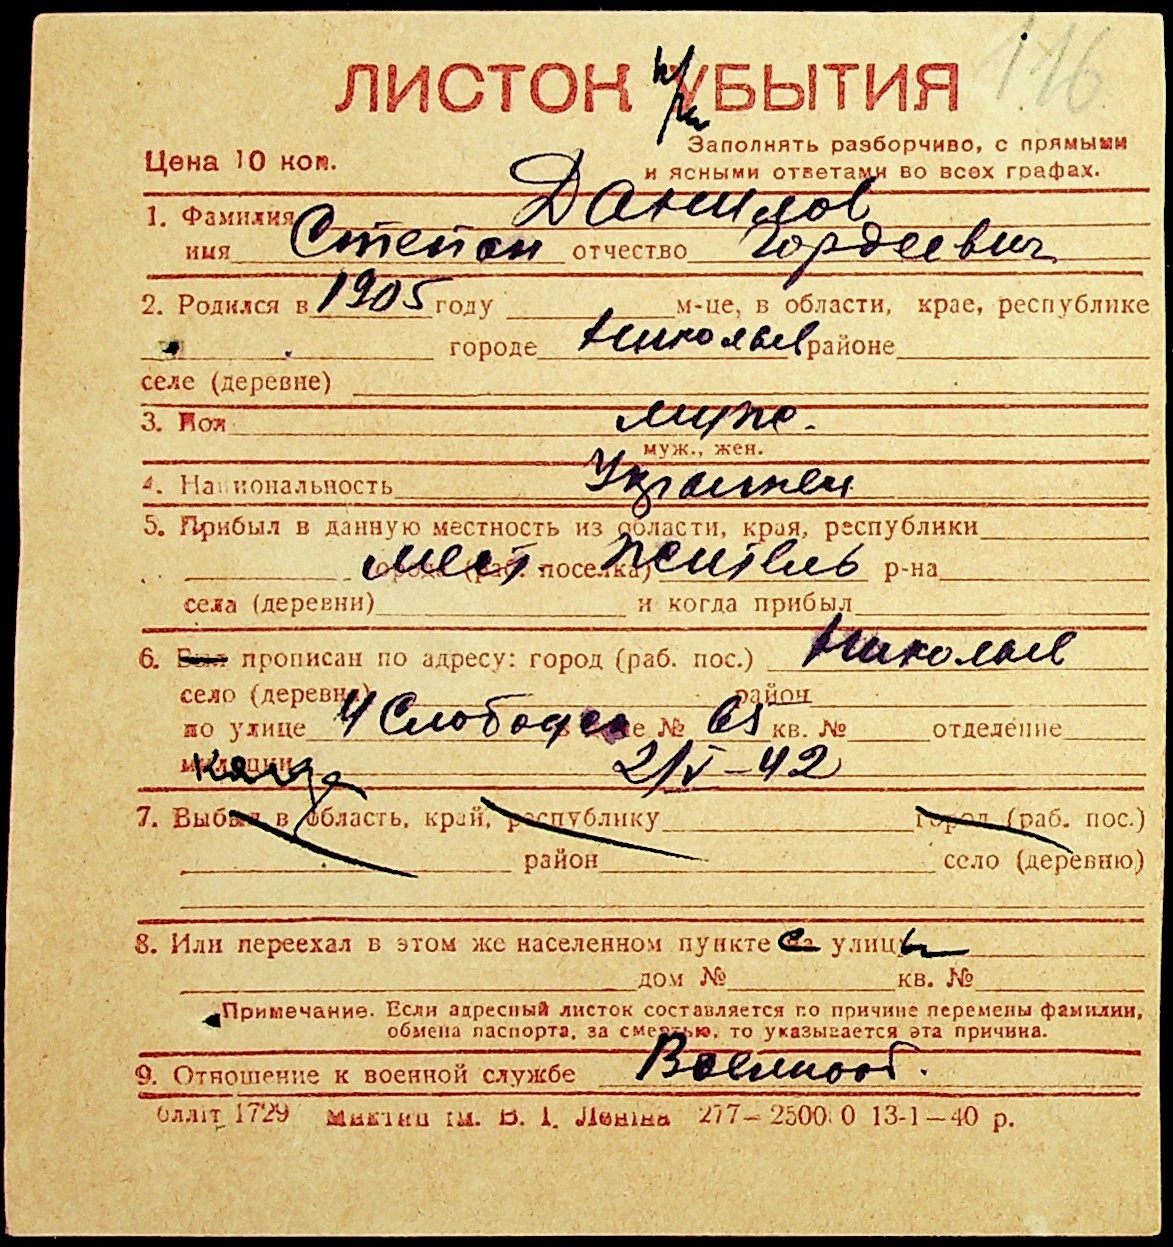 116
ЛИСТОК УБЫТИЯ
Цена 10 коп.
Заполнять разборчиво, с прямыми
и ясными ответами во всех графах.
1. Фамилия Данилов
имя Степан отчество Гордеевич
2. Родился в 1905 году м-це, в области, крае, республике
городе Николаев районе
селе (деревне)
3. Пол муж.
муж., жен.
4. Национальность Украинец
5. Прибыл в данную местность из области, края, республики
мест. житель
города (раб. поселка) р-на
села (деревни) и когда прибыл
6. Был прописан по адресу: город (раб. пос.) Николаев
село (деревня) район
по улице 4 Слободск в доме № 61 кв. № отделение
милиции 2/V-42
7. Выбыл в область, край, республику город (раб. пос.)
район село (деревню)
8. Или переехал в этом же населенном пункте с на улицы
дом № кв. №
Примечание. Если адресный листок составляется по причине перемены фамилии,
обмена паспорта, за смертью, то указывается эта причина.
9. Отношение к военной службе Военнооб.
Обллiт 1729 iм. В. I. Ленiна 277—25000 13-1—40 р.